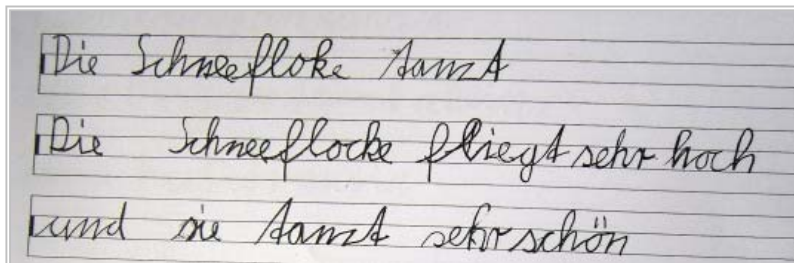 Die Schneefloke tanzt
Die Schneeflocke fliegt sehr hoch
und sie tanzt sehr schön